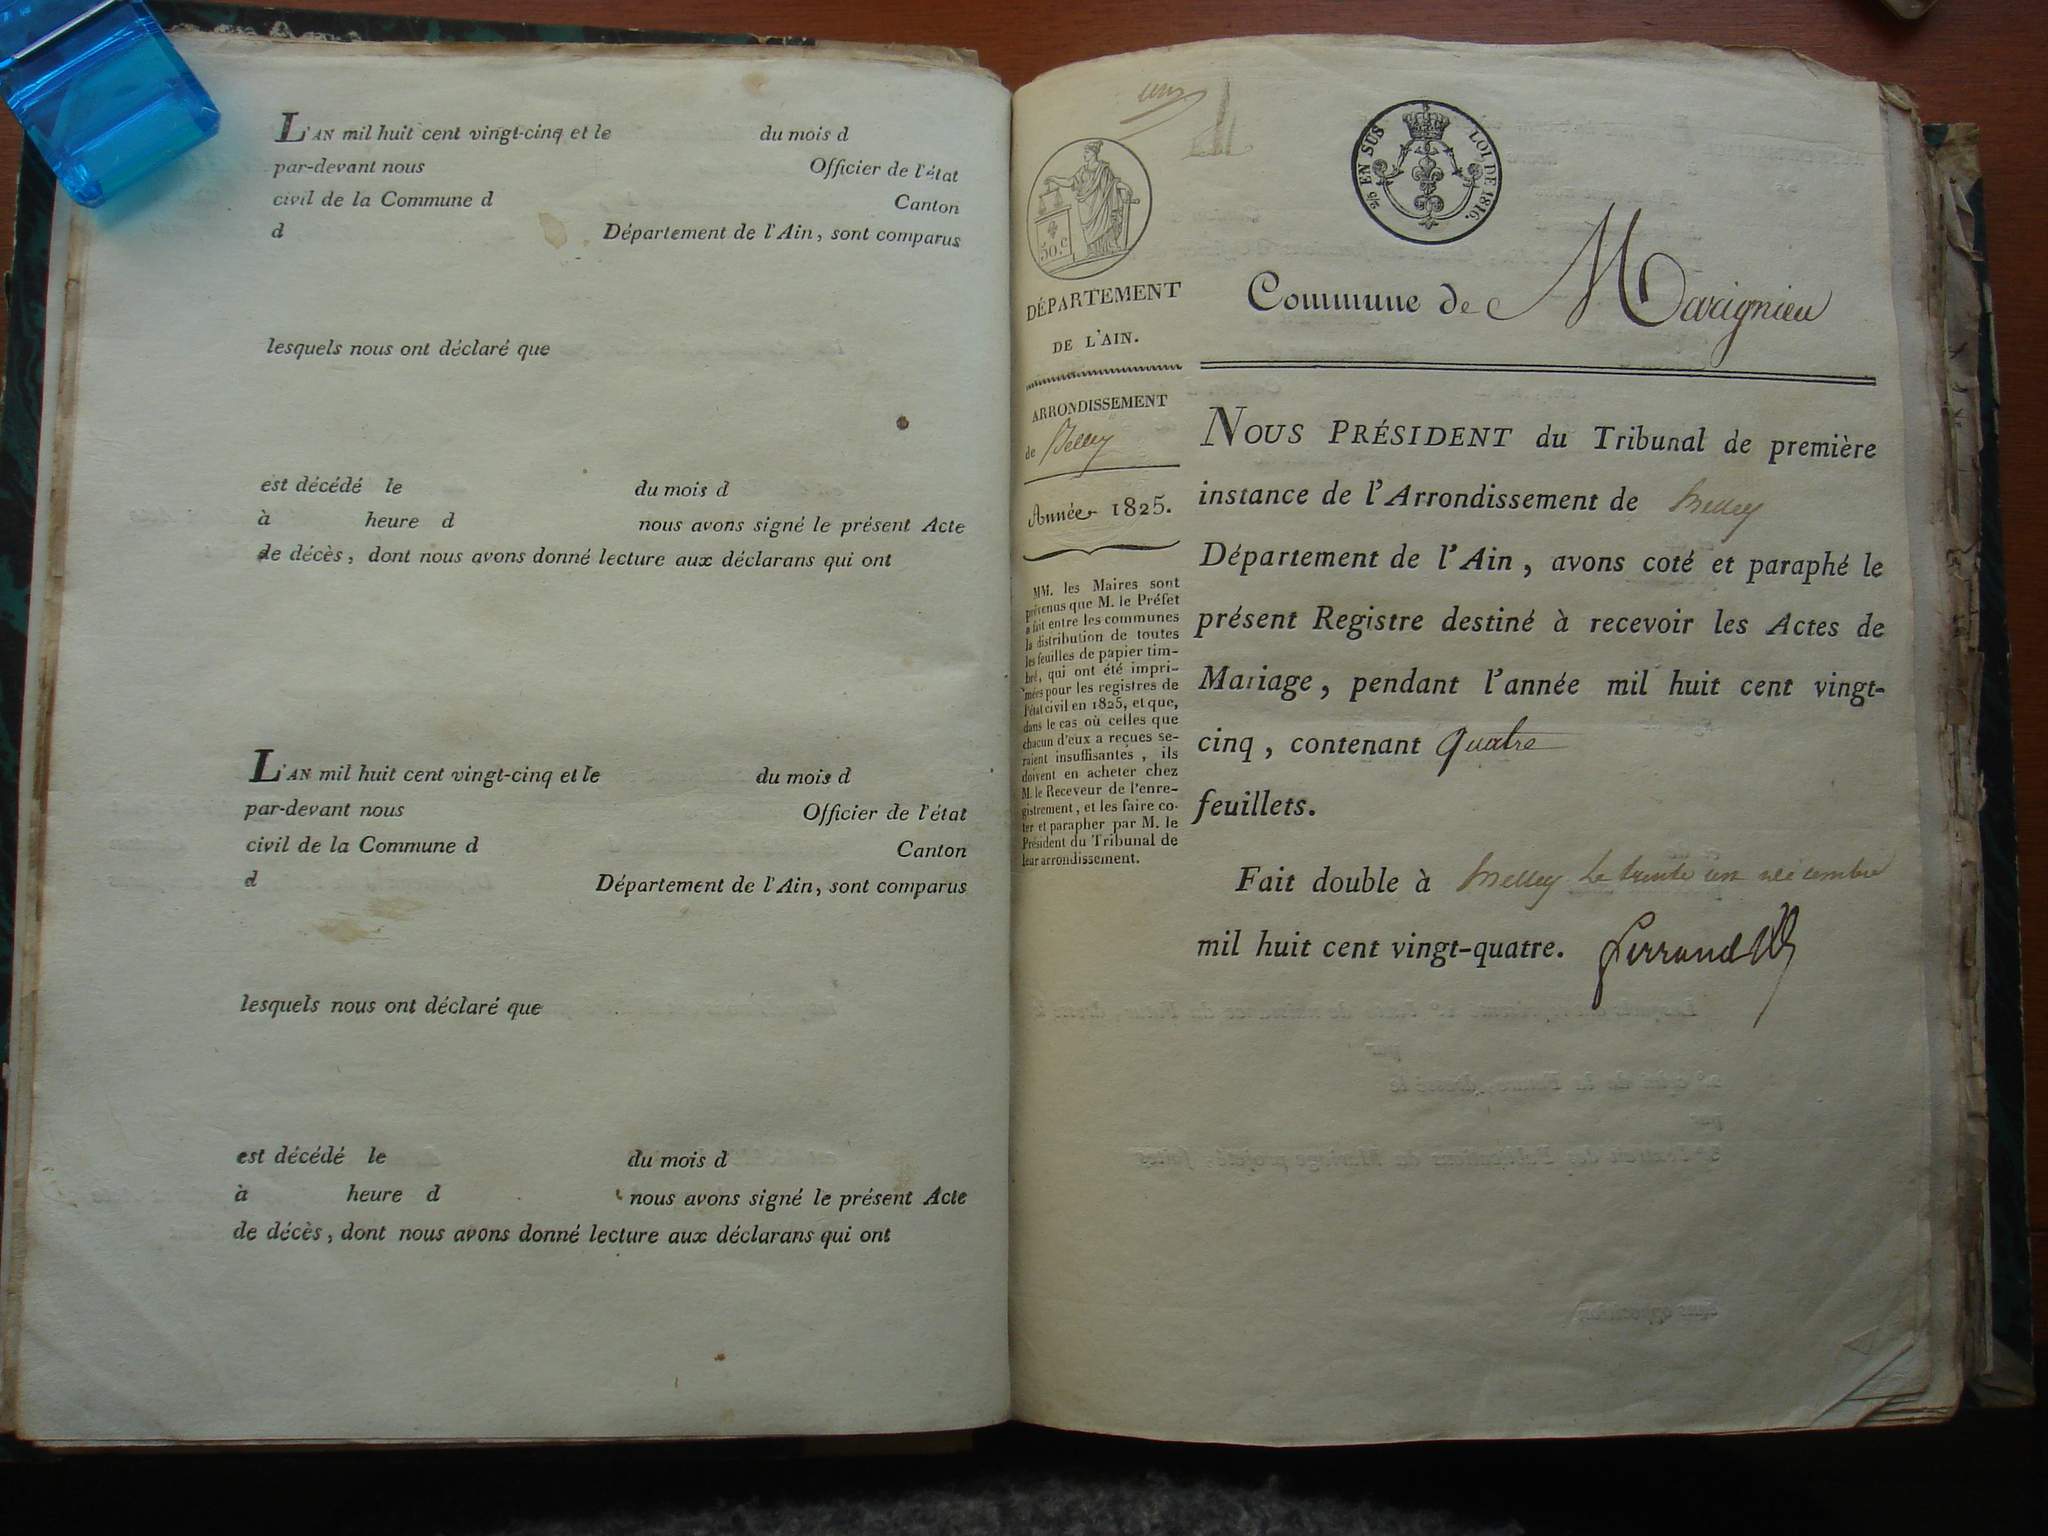 L'AN mil huit cent vingt-cinq et le du mois d
par-devant nous Officier de l'état
civil de la Commune d Canton
d Département de l'Ain, sont comparus
lesquels nous ont déclaré que
est décédé le du mois d
à heure d nous avons signé le présent Acte
de décès, dont nous avons donné lecture aux déclarans qui ont
L'AN mil huit cent vingt-cinq et le du mois d
par-devant nous Officier de l'état
civil de la Commune d Canton
d Département de l'Ain, sont comparus
lesquels nous ont déclaré que
est décédé le du mois d
à heure d nous avons signé le présent Acte
de décès, dont nous avons donné lecture aux déclarans qui ont
EN SUS LOI DE 1816.
50.c
DÉPARTEMENT
DE L'AIN.
ARRONDISSEMENT
de Belley
Année 1825.
MM. les Maires sont
prévenus que M. le Préfet
a fait entre les communes
la distribution de toutes
les feuilles de papier tim-
bré, qui ont été impri-
mées pour les registres de
l'état civil en 1825, et que,
dans le cas où celles que
chacun d'eux a reçues se-
raient insuffisantes, ils
doivent en acheter chez
M. le Receveur de l'enre-
gistrement, et les faire co-
ter et parapher par M. le
Président du Tribunal de
leur arrondissement.
Commune de Marignieu
NOUS PRÉSIDENT du Tribunal de première
instance de l'Arrondissement de Belley
Département de l'Ain, avons coté et paraphé le
présent Registre destiné à recevoir les Actes de
Mariage, pendant l'année mil huit cent vingt-
cinq, contenant quatre
feuillets.
Fait double à Belley le trente un décembre
mil huit cent vingt-quatre.